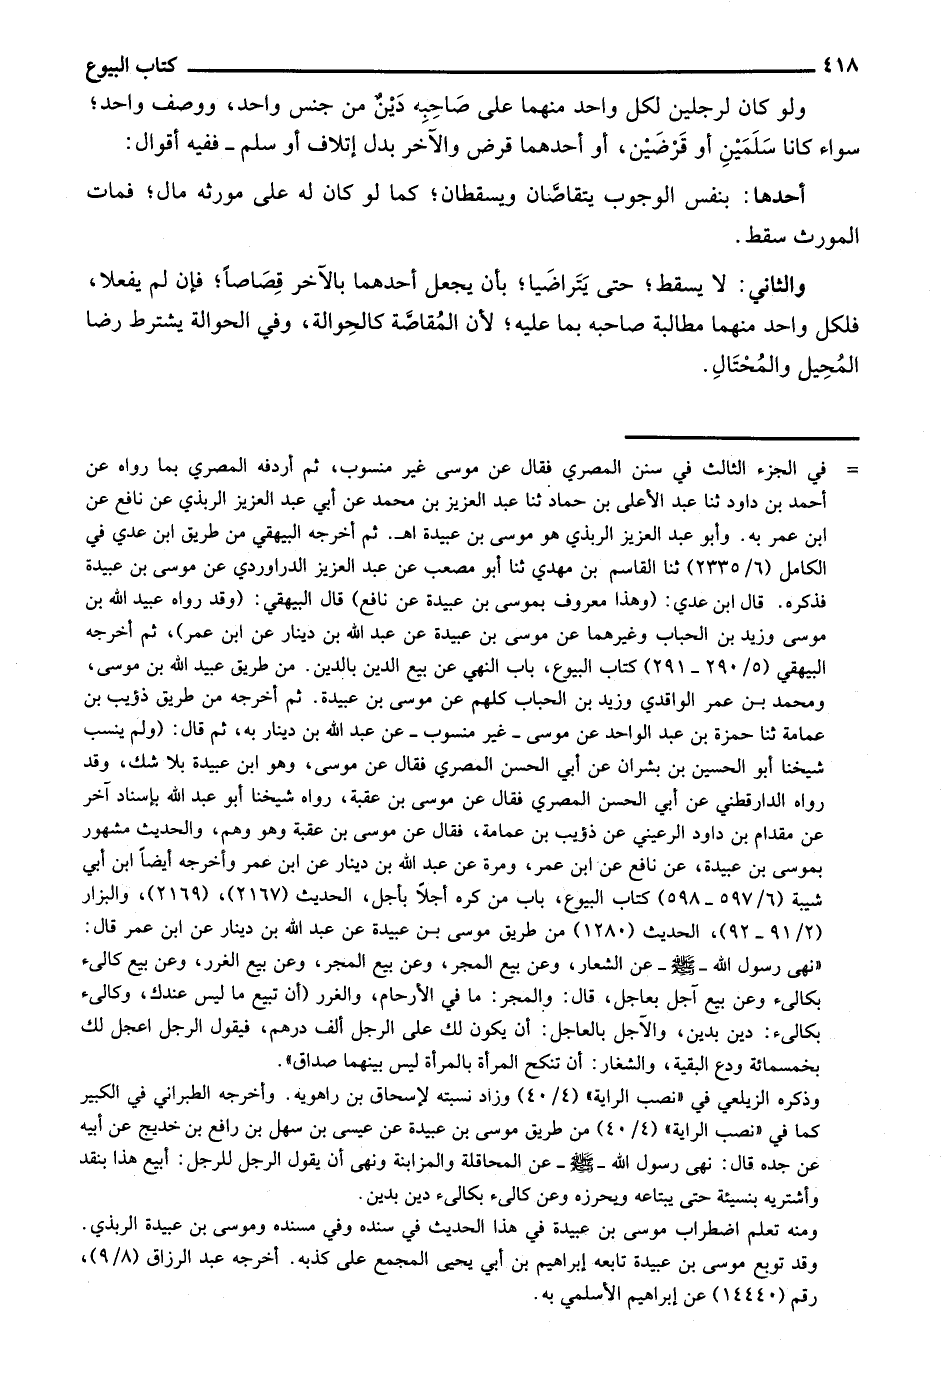 ٤١٨ كتاب البيوع
ولو كان لرجلين لكل واحد منهما على صَاحِبِه دَيْنٌ من جنس واحد، ووصف واحد؛
سواء كانا سَلَمَيْنِ أو قَرْضَيْن، أو أحدهما قرض والآخر بدل إتلاف أو سلم ـ ففيه أقوال:
أحدها: بنفس الوجوب يتقاصَّان ويسقطان؛ كما لو كان له على مورثه مال؛ فمات
المورث سقط.
والثاني: لا يسقط؛ حتى يَتَراضَيا؛ بأن يجعل أحدهما بالآخر قِصَاصاً؛ فإن لم يفعلا،
فلكل واحد منهما مطالبة صاحبه بما عليه؛ لأن المُقاصَّة كالحِوالة، وفي الحوالة يشترط رضا
المُحِيل والمُحْتَالِ.
= في الجزء الثالث في سنن المصري فقال عن موسى غير منسوب، ثم أردفه المصري بما رواه عن
أحمد بن داود ثنا عبد الأعلى بن حماد ثنا عبد العزيز بن محمد عن أبي عبد العزيز الربذي عن نافع عن
ابن عمر به. وأبو عبد العزيز الربذي هو موسى بن عبيدة اهـ. ثم أخرجه البيهقي من طريق ابن عدي في
الكامل (٦/ ٢٣٣٥) ثنا القاسم بن مهدي ثنا أبو مصعب عن عبد العزيز الدراوردي عن موسى بن عبيدة
فذكره. قال ابن عدي: (وهذا معروف بموسى بن عبيدة عن نافع) قال البيهقي: (وقد رواه عبيد الله بن
موسى وزيد بن الحباب وغيرهما عن موسى بن عبيدة عن عبد الله بن دينار عن ابن عمر)، ثم أخرجه
البيهقي (٥/ ٢٩٠ ـ ٢٩١) كتاب البيوع، باب النهي عن بيع الدين بالدين. من طريق عبيد الله بن موسى،
ومحمد بـن عمر الواقدي وزيد بن الحباب كلهم عن موسى بن عبيدة. ثم أخرجه من طريق ذؤيب بن
عمامة ثنا حمزة بن عبد الواحد عن موسى ـ غير منسوب ـ عن عبد الله بن دينار به، ثم قال: (ولم ينسب
شيخنا أبو الحسين بن بشران عن أبي الحسن المصري فقال عن موسى، وهو ابن عبيدة بلا شك، وقد
رواه الدارقطني عن أبي الحسن المصري فقال عن موسى بن عقبة، رواه شيخنا أبو عبد الله بإسناد آخر
عن مقدام بن داود الرعيني عن ذؤيب بن عمامة، فقال عن موسى بن عقبة وهو وهم، والحديث مشهور
بموسى بن عبيدة، عن نافع عن ابن عمر، ومرة عن عبد الله بن دينار عن ابن عمر وأخرجه أيضاً ابن أبي
شيبة (٦/ ٥٩٧ ـ ٥٩٨) كتاب البيوع، باب من كره أجلاً بأجل، الحديث (٢١٦٧)، (٢١٦٩)، والبزار
(٢/ ٩١ ـ ٩٢)، الحديث (١٢٨٠) من طريق موسى بـن عبيدة عن عبد الله بن دينار عن ابن عمر قال:
«نهى رسول الله ـ ﷺ ـ عن الشعار، وعن بيع المجر، وعن بيع المجر، وعن بيع الغرر، وعن بيع كالىء
بكالىء وعن بيع آجل بعاجل، قال: والمجر: ما في الأرحام، والغرر (أن تبيع ما ليس عندك، وكالىء
بكالىء: دين بدين، والآجل بالعاجل: أن يكون لك على الرجل ألف درهم، فيقول الرجل اعجل لك
بخمسمائة ودع البقية، والشغار: أن تنكح المرأة بالمرأة ليس بينهما صداق».
وذكره الزيلعي في «نصب الراية» (٤/ ٤٠) وزاد نسبته لإسحاق بن راهويه. وأخرجه الطبراني في الكبير
كما في «نصب الراية» (٤/ ٤٠) من طريق موسى بن عبيدة عن عيسى بن سهل بن رافع بن خديج عن أبيه
عن جده قال: نهى رسول الله ـ ﷺ ـ عن المحاقلة والمزابنة ونهى أن يقول الرجل للرجل: أبيع هذا بنقد
وأشتريه بنسيئة حتى يبتاعه ويحرزه وعن كالىء بكالىء دين بدين.
ومنه تعلم اضطراب موسى بن عبيدة في هذا الحديث في سنده وفي مسنده وموسى بن عبيدة الربذي.
وقد توبع موسى بن عبيدة تابعه إبراهيم بن أبي يحيى المجمع على كذبه. أخرجه عبد الرزاق (٨/ ٩)،
رقم (١٤٤٤٠) عن إبراهيم الأسلمي به.